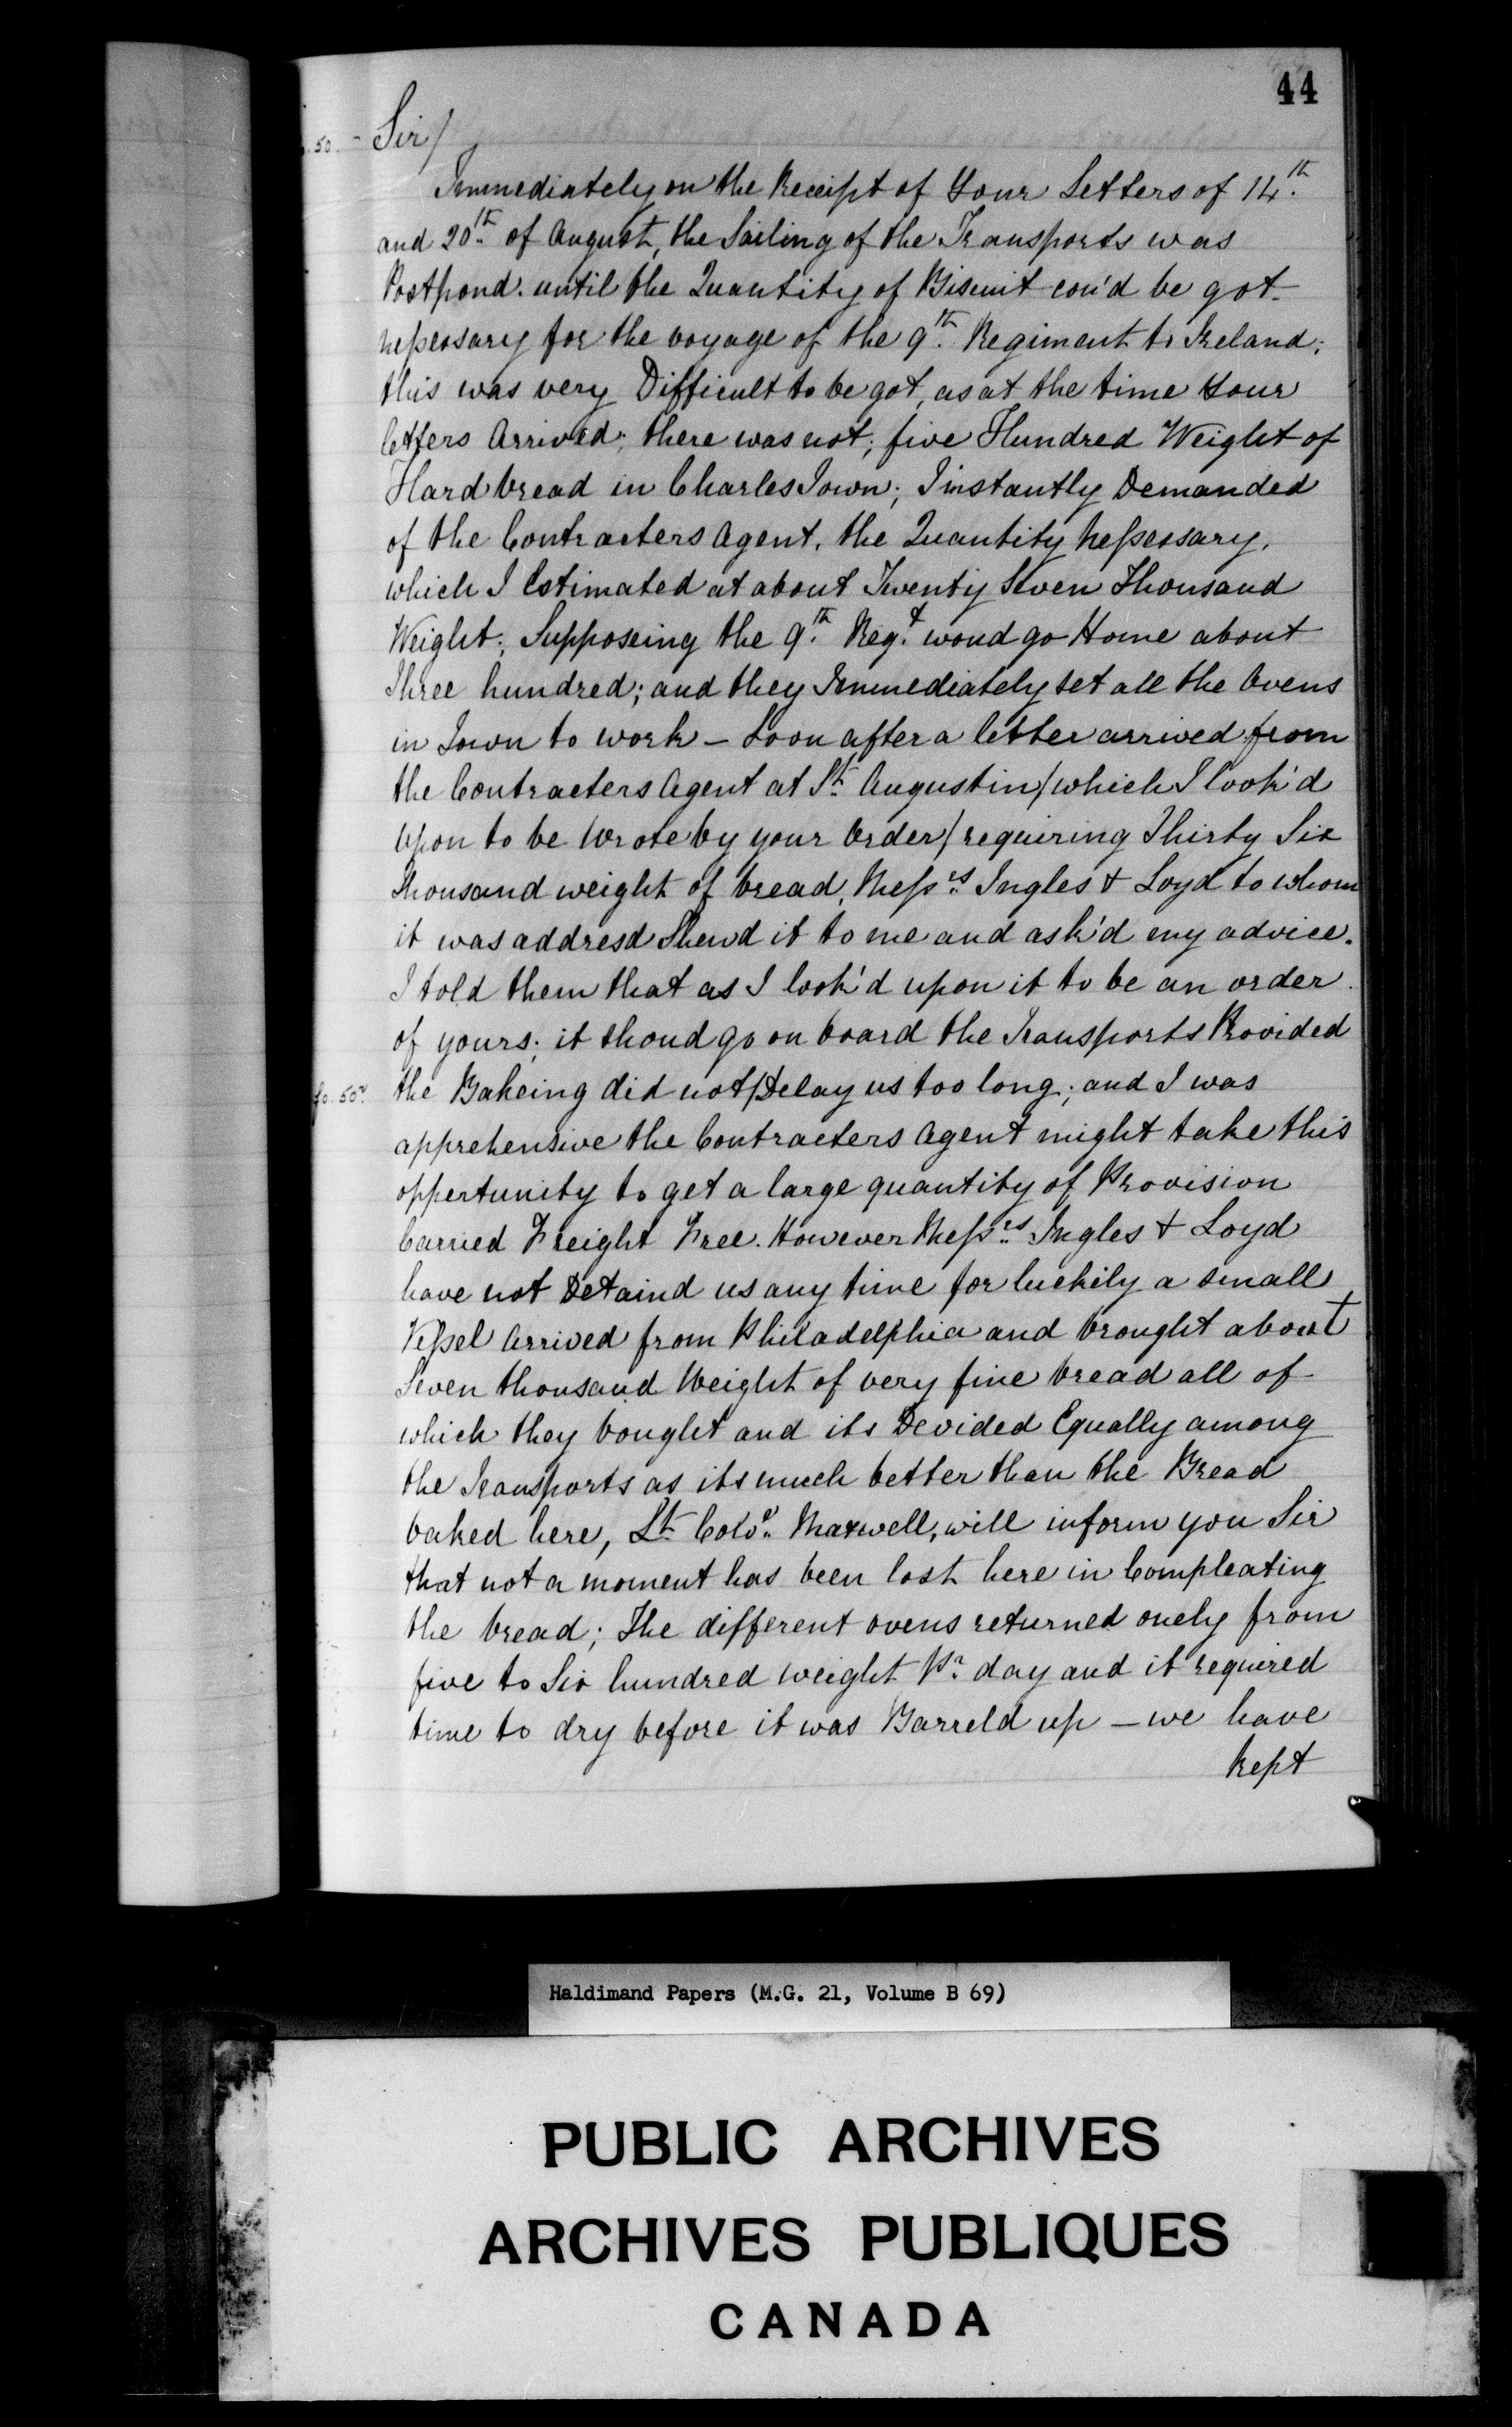 44
50. - Sir/
Immediately on the Receipt of Your Letters of 14.th
and 20.th of August, the Sailing of the Transports was
Postpond. until the Quantity of Biscuit cou'd be got
nessessary for the voyage of the 9.th Regiment to Ireland;
this was very Difficult to be got, as at the time Your
letters Arrived; there was not; five Hundred Weight of
Hard bread in CharlesTown; I instantly Demanded
of the Contracters Agent, the Quantity Nessessary,
which I Estimated at about Twenty Seven Thousand
Weight; Supposeing the 9.th Reg.t woud go Home about
Three hundred; and they Immediately set all the Ovens
in Town to work — Soon after a letter arrived from
the Contracters Agent at S.t Augustin/which I look'd
upon to be Wrote by your Order/requiring Thirty Six
Thousand weight of bread, Mess.rs Ingles & Loyd to whom
it was addresd Shewd it to me and ask'd my advice.
I told them that as I look'd upon it to be an order
of yours; it shoud go on board the Transports Provided
fo. 50.v the Bakeing did not/Delay us too long; and I was
apprehensive the Contracters Agent might take this
oppertunity to get a large quantity of Provision
Carried Freight Free. However Mess.rs Ingles & Loyd
have not Detaind us any time for luckily a small
Vessel Arrived from Philadelphia and brought about
Seven thousand Weight of very fine bread all of
which they bought and its Devided Equally among
the Transports as its much better than the Bread
baked here, L.t Colo.l Maxwell, will inform you Sir
that not a moment has been lost here in Compleating
the bread; The different ovens returned onely from
five to Six hundred weight P.r day and it required
time to dry before it was Barreld up — we have
kept
Haldimand Papers (M.G. 21, Volume B 69)
PUBLIC ARCHIVES
ARCHIVES PUBLIQUES
CANADA